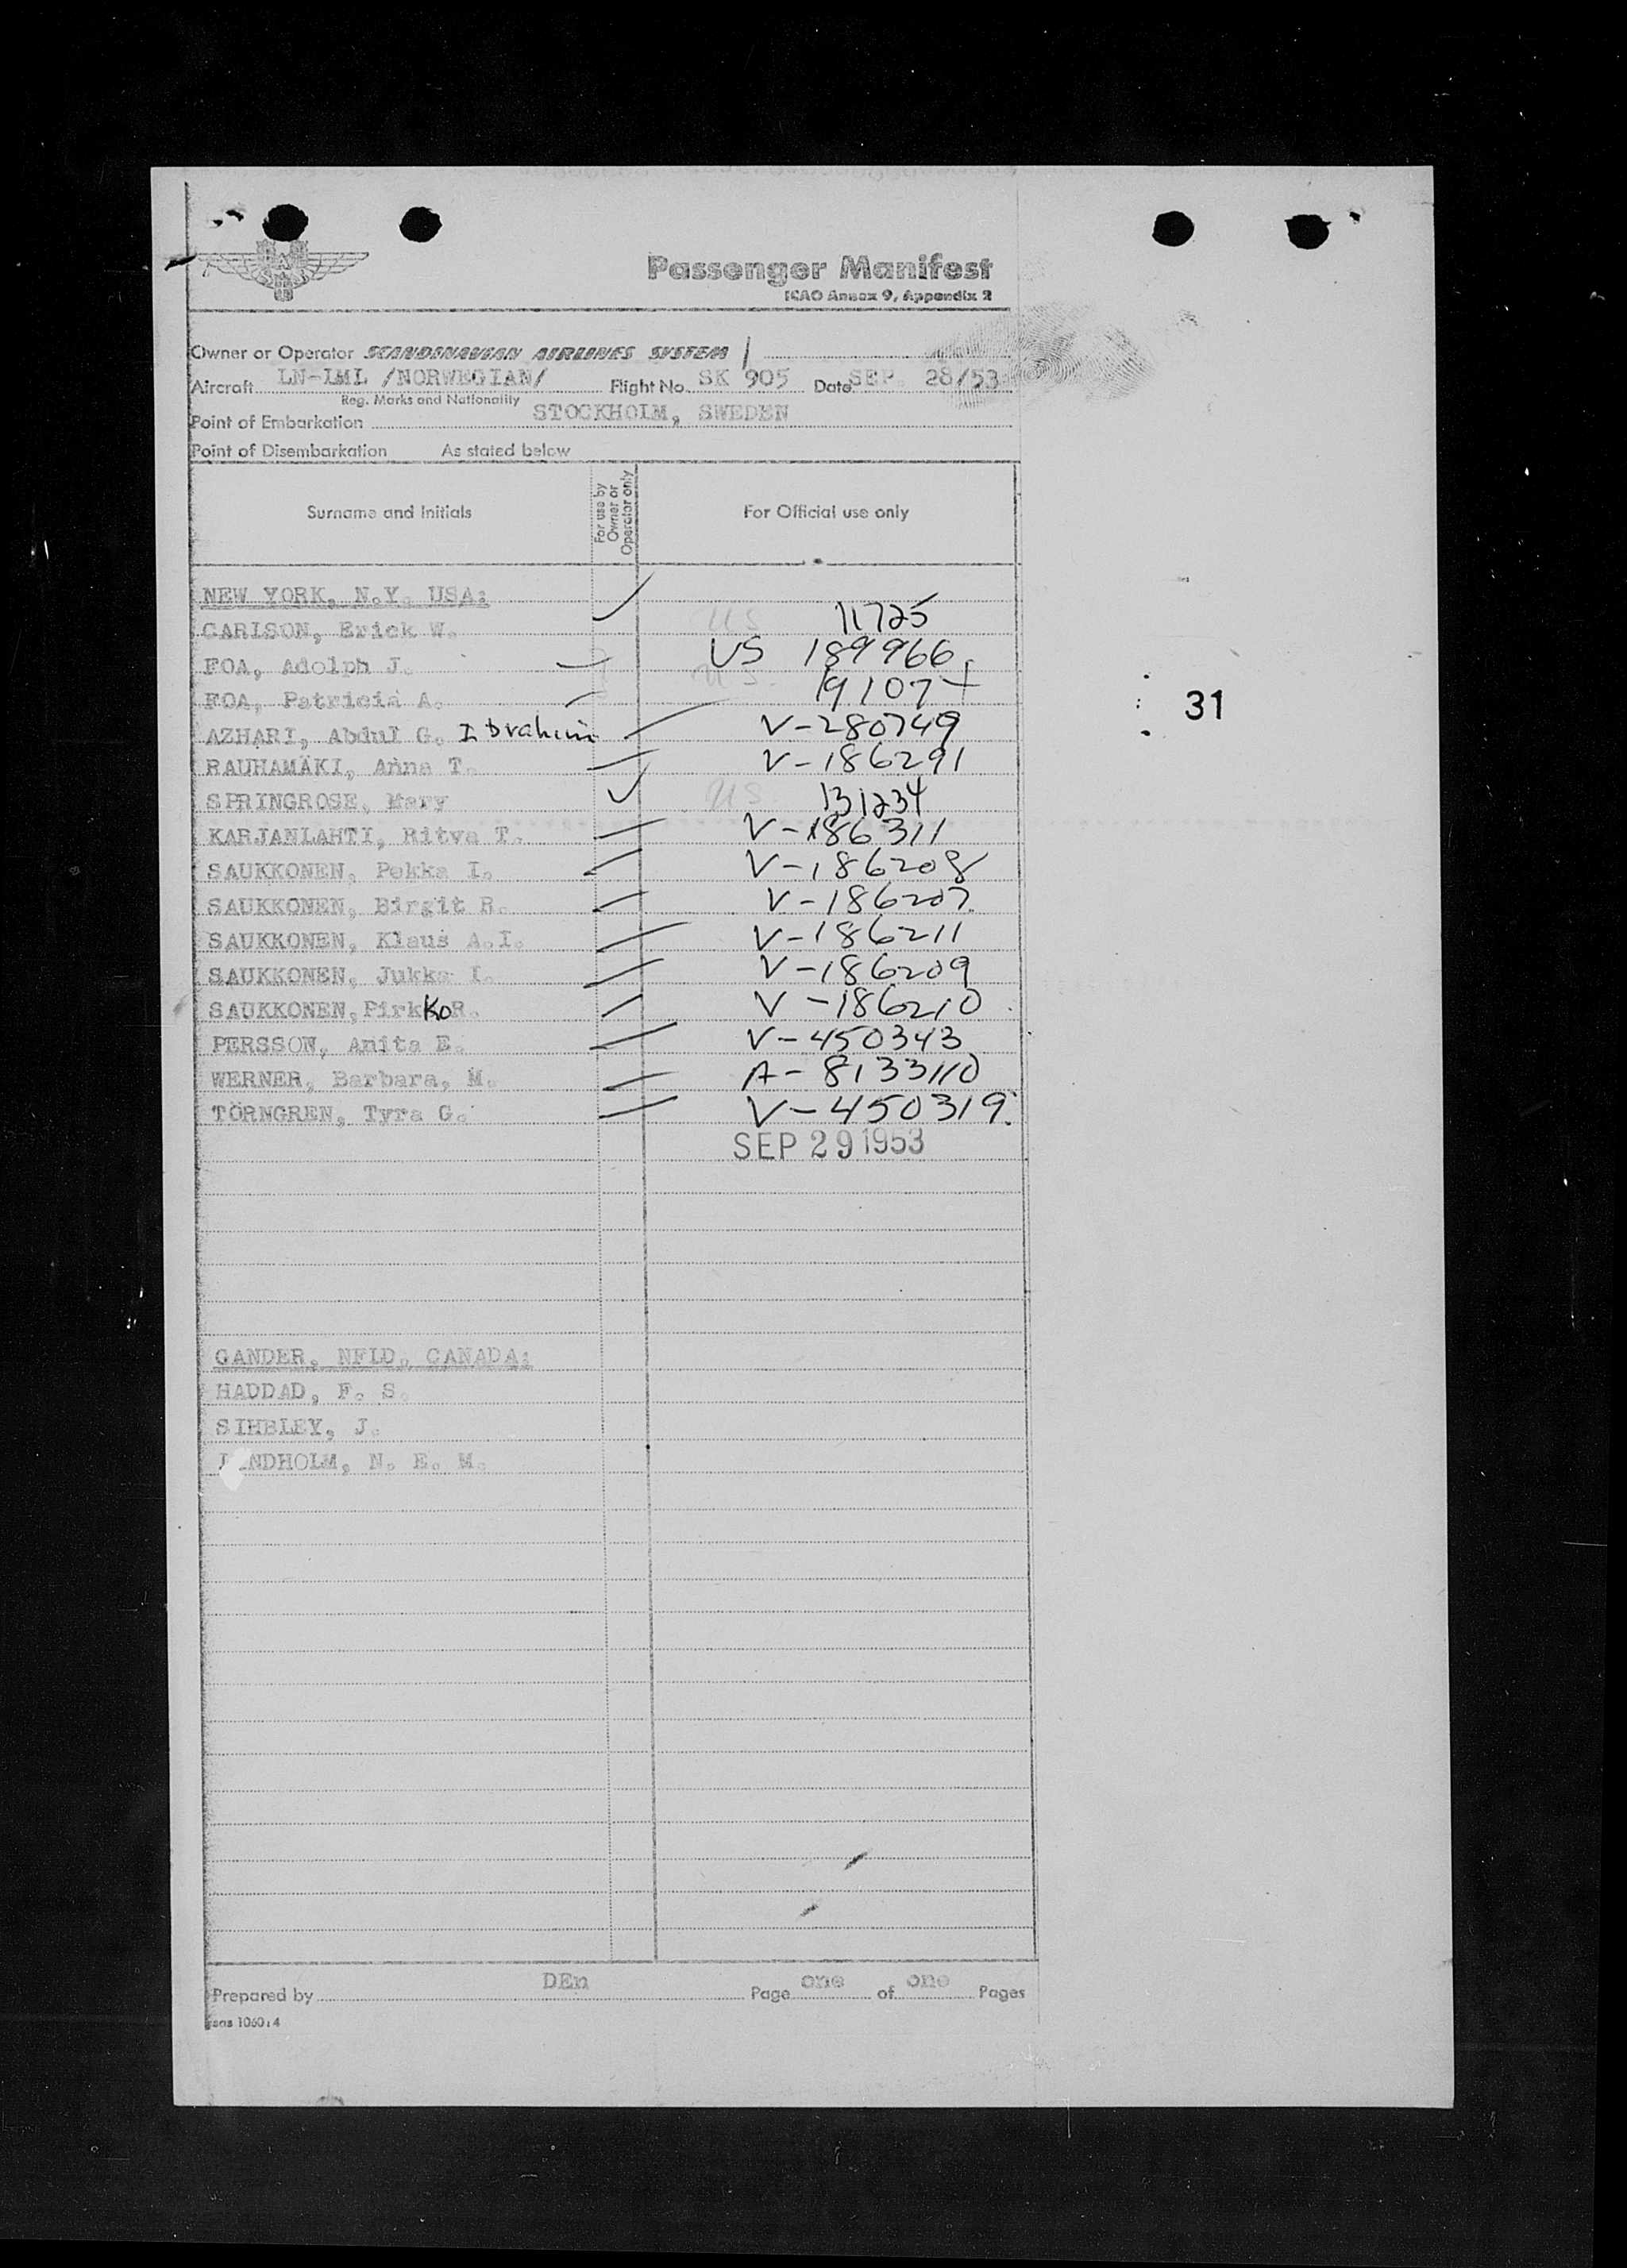 Passenger Manifest
ICAO Annex 9, Appendix 2
Owner or Operator SCANDINAVIAN AIRLINES SYSTEM
Aircraft LN-LML /NORWEGIAN/ Flight No. SK 905 Date SEP. 28/53
Reg. Marks and Nationality
Point of Embarkation STOCKHOLM, SWEDEN
Point of Disembarkation As stated below
Surname and Initials For use by Owner or Operator only For Official use only
NEW YORK, N.Y. USA:
CARLSON, Erick W. US 11725
FOA, Adolph J. US 189966
FOA, Patricia A. US 19107
31
AZHARI, Abdul G. Ibrahim V-280749
RAUHAMÄKI, Anna T. V-186291
SPRINGROSE, Mary US 131234
KARJANLAHTI, Ritva T. V-186311
SAUKKONEN, Pekka I. V-186208
SAUKKONEN, Birgit R. V-186207
SAUKKONEN, Klaus A.I. V-186211
SAUKKONEN, Jukka I. V-186209
SAUKKONEN, Pirkko R. V-186210
PERSSON, Anita E. V-450343
WERNER, Barbara, M. A-8133110
TÖRNGREN, Tyra G. V-450319
SEP 29 1953
GANDER, NFLD, CANADA:
HADDAD, F. S.
SIHBLEY, J.
N. E. M.
Prepared by DEn Page one of one Pages
sas 1060:4